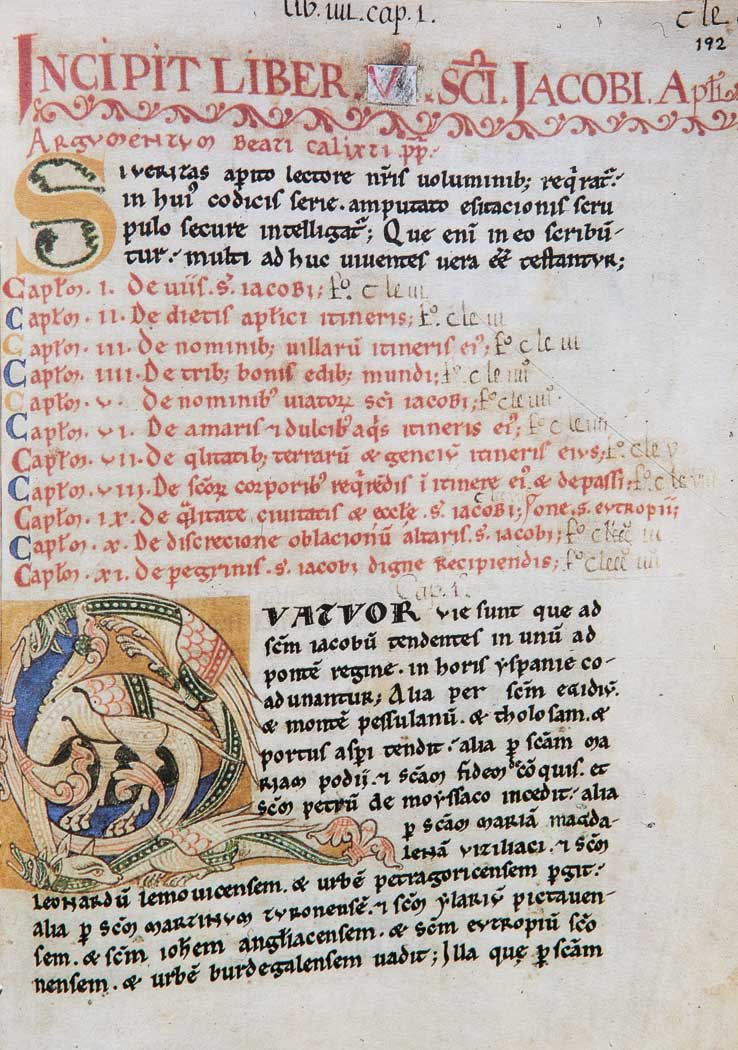 lib. IIII. cap. 1.
cle
192
INCIPIT LIBER .V. SCI. JACOBI. Apłi
ARGUMENTUM BEATI CALIXTI pp̄.
SI VERITAS aperito lectore nr̄is voluminib; reqrat᷑.
in hui᾽ codicis serie. amputato esitacionis scru
pulo secure intelligat᷑; Que eni in eo scribun̄
tur. multi ad huc viventes vera ee᷑ testantur;
Capłm. I. De viis. s̄. iacobi; fº. cle iii
Capłm. II. De dietis apłici itineris; fº. cle iii
Capłm. III. De nominib; villarū itineris ei᾽; fº cle iii
Capłm. IIII. De trib; bonis edib; mundi; fº. cle iiii
Capłm. V. De nominib᾽ viatoꝝ sc̄i iacobi; fº cle iiii
Capłm. VI. De amaris ⁊ dulcib᾽ aq̄s itineris ei᾽; fº. cle iiii
Capłm. VII. De qlitatib; terrarū & genciū itineris eius; fº. cle v
Capłm. VIII. De sc̄oꝝ corporib᾽ reqredis ī itinere ei᾽ & de passi; fº. cle
Capłm. IX. De qlitate civitatis & eccłe s̄. iacobi; one. s̄. eutropii;
Capłm. X. De discrecione oblacionū altaris. s̄. iacobi; fº
Capłm. XI. De pegrinis. s̄. iacobi digne recipiendis; fº
Cap. 1.
QUATUOR vie sunt que ad
sc̄m iacobū tendentes in unū ad
pontē regine. in horis yspanie co-
adunantur; Alia per sc̄m egidiū.
& montē pessulanū. & tholosam. &
portus aspi tendit. alia p sc̄am ma
riam podii. ⁊ sc̄am fidem de cōquis. et
sc̄m petrū de moyssaco incedit. alia
p sc̄am mariā magda-
lenā viziliaci. ⁊ sc̄m
leonardū lemovicensem. & urbē petragoricensem pgit.
alia p sc̄m martinum turonensē. ⁊ sc̄m ylariū pictaven-
sem. & sc̄m ioh̄em angliacensem. & sc̄m eutropiū sc̄o
nensem. & urbē burdegalensem vadit; Illa que p sc̄am